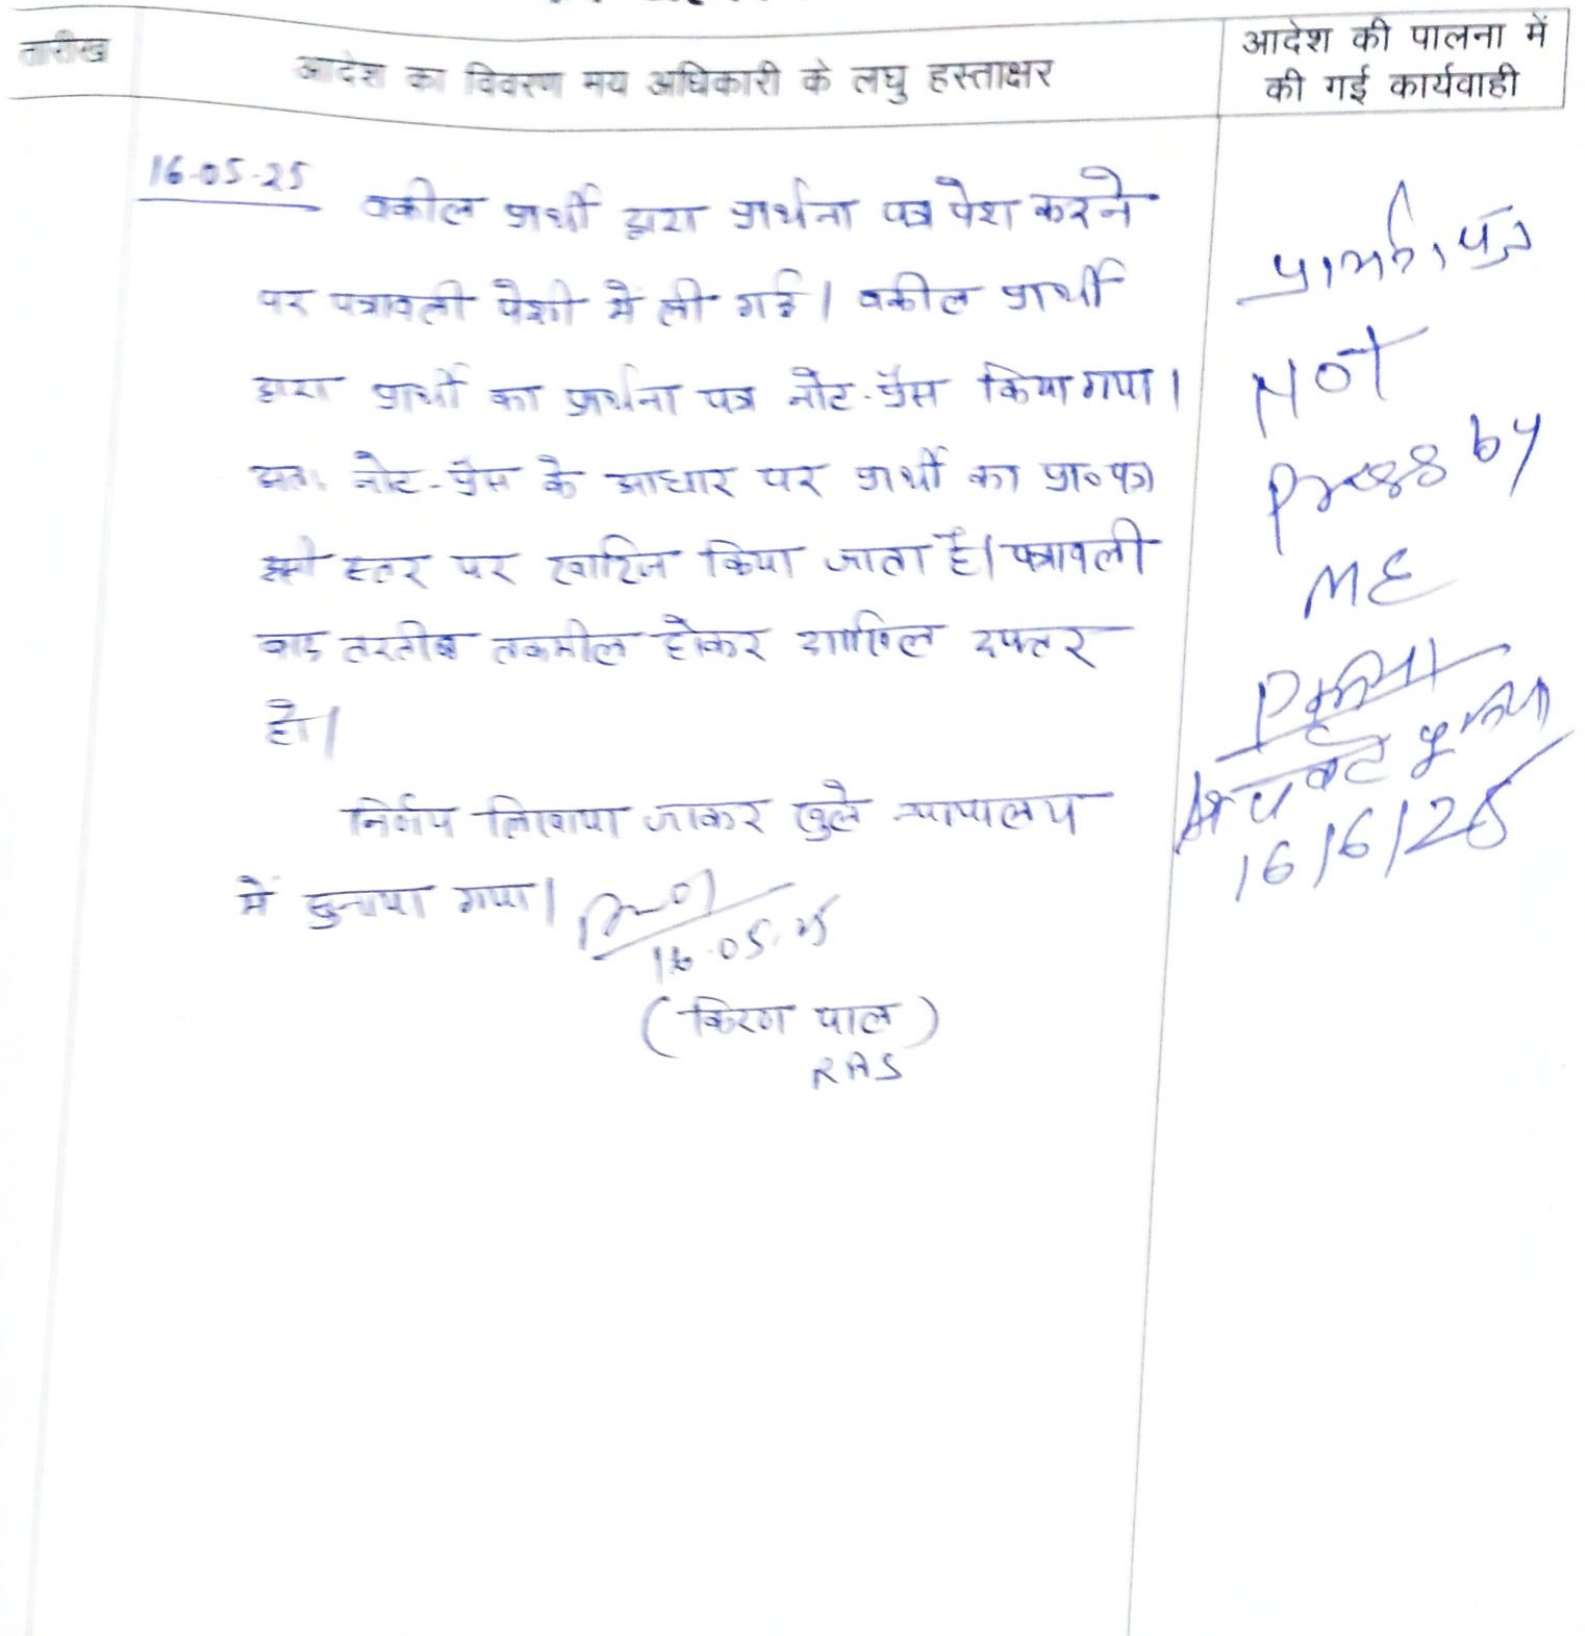 तारीख
आदेश का विवरण मय अधिकारी के लघु हस्ताक्षर
आदेश की पालना में
की गई कार्यवाही
16-05-25
वकील प्रार्थी द्वारा प्रार्थना पत्र पेश करने
पर पत्रावली पेशी में ली गई। वकील प्रार्थी
द्वारा प्रार्थी का प्रार्थना पत्र नोट-प्रैस किया गया।
अतः नोट-प्रैस के आधार पर प्रार्थी का प्रा०पत्र
इसी स्तर पर खारिज किया जाता है। पत्रावली
बाद तरतीब तकमील होकर दाखिल दफ्तर
हो।
निर्णय लिखाया जाकर खुले न्यायालय
में सुनाया गया।
16.05.25
(किरण पाल)
RAS
प्रार्थना पत्र
NOT
Press by
ME
16/6/25